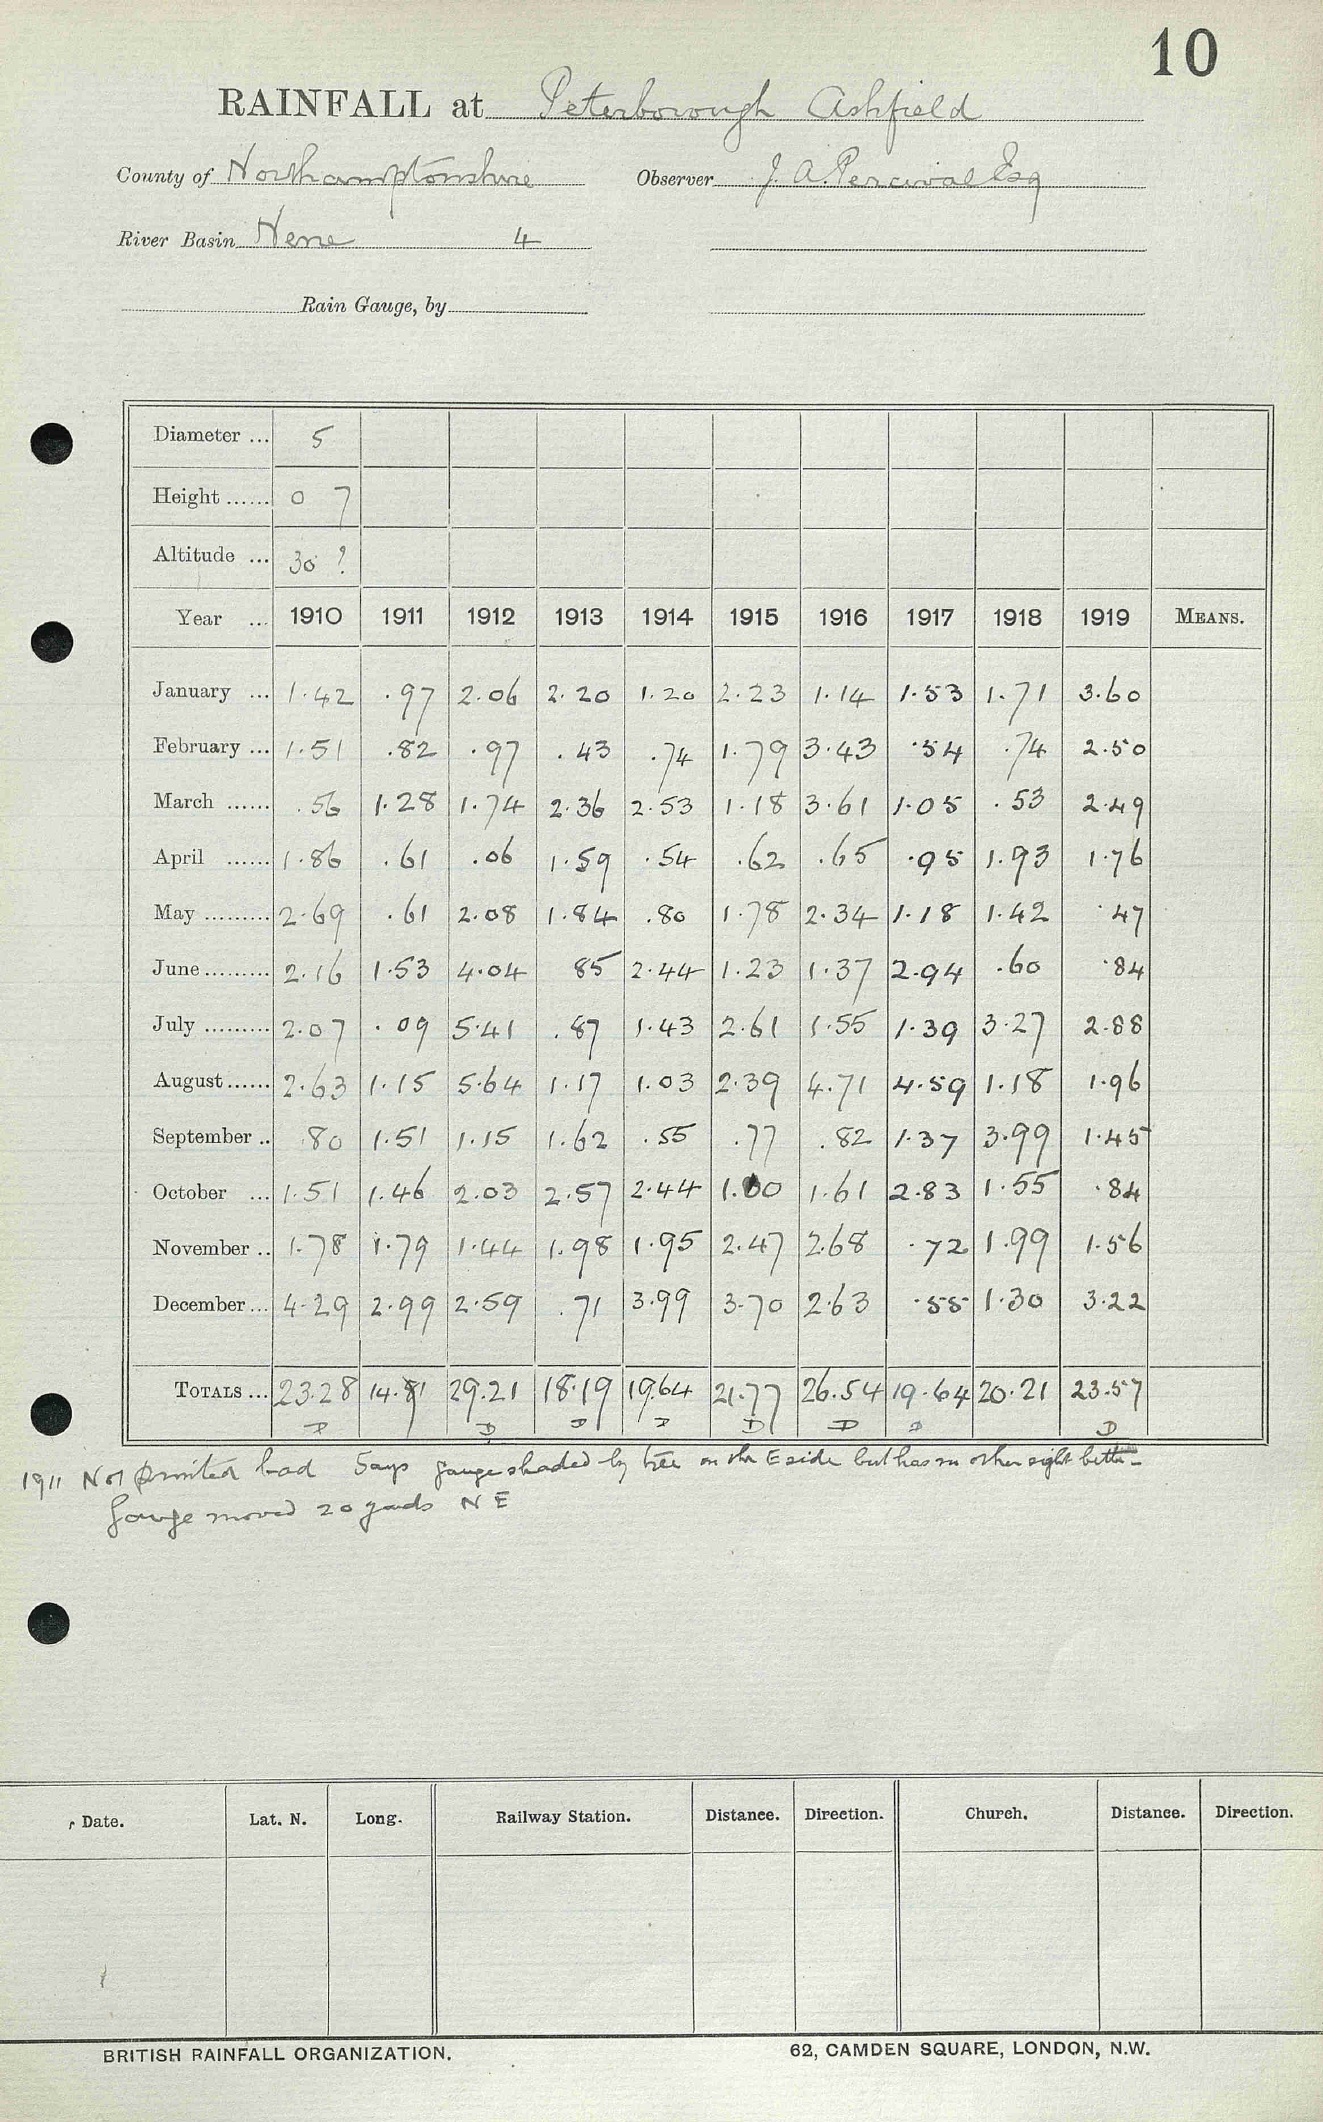 10
RAINFALL at Peterborough Ashfield
County of Northamptonshire Observer J. A. Percival Esq
River Basin Nene 4
Rain Gauge, by
Diameter ... 5
Height ...... 0 7
Altitude ... 30 ?
Year ... 1910 1911 1912 1913 1914 1915 1916 1917 1918 1919 MEANS.
January ... 1.42 .97 2.06 2.20 1.20 2.23 1.14 1.53 1.71 3.60
February ... 1.51 .82 .97 .43 .74 1.79 3.43 .54 .74 2.50
March ...... .56 1.28 1.74 2.36 2.53 1.18 3.61 1.05 .53 2.49
April ...... 1.86 .61 .06 1.59 .54 .62 .65 .95 1.93 1.76
May ......... 2.69 .61 2.08 1.84 .80 1.78 2.34 1.18 1.42 .47
June ......... 2.16 1.53 4.04 85 2.44 1.23 1.37 2.94 .60 .84
July ......... 2.07 .09 5.41 .87 1.43 2.61 1.55 1.39 3.27 2.88
August ...... 2.63 1.15 5.64 1.17 1.03 2.39 4.71 4.59 1.18 1.96
September .. .80 1.51 1.15 1.62 .55 .77 .82 1.37 3.99 1.45
October ... 1.51 1.46 2.03 2.57 2.44 1.00 1.61 2.83 1.55 .84
November .. 1.78 1.79 1.44 1.98 1.95 2.47 2.68 .72 1.99 1.56
December ... 4.29 2.99 2.59 .71 3.99 3.70 2.63 .55 1.30 3.22
TOTALS ... 23.28 14.81 29.21 18.19 19.64 21.77 26.54 19.64 20.21 23.57
D D D D D D D D
1911 Not printed bad Says gauge shaded by tree on the E side but has no other sight better
Gauge moved 20 yards N E
Date. Lat. N. Long. Railway Station. Distance. Direction. Church. Distance. Direction.
BRITISH RAINFALL ORGANIZATION. 62, CAMDEN SQUARE, LONDON, N.W.